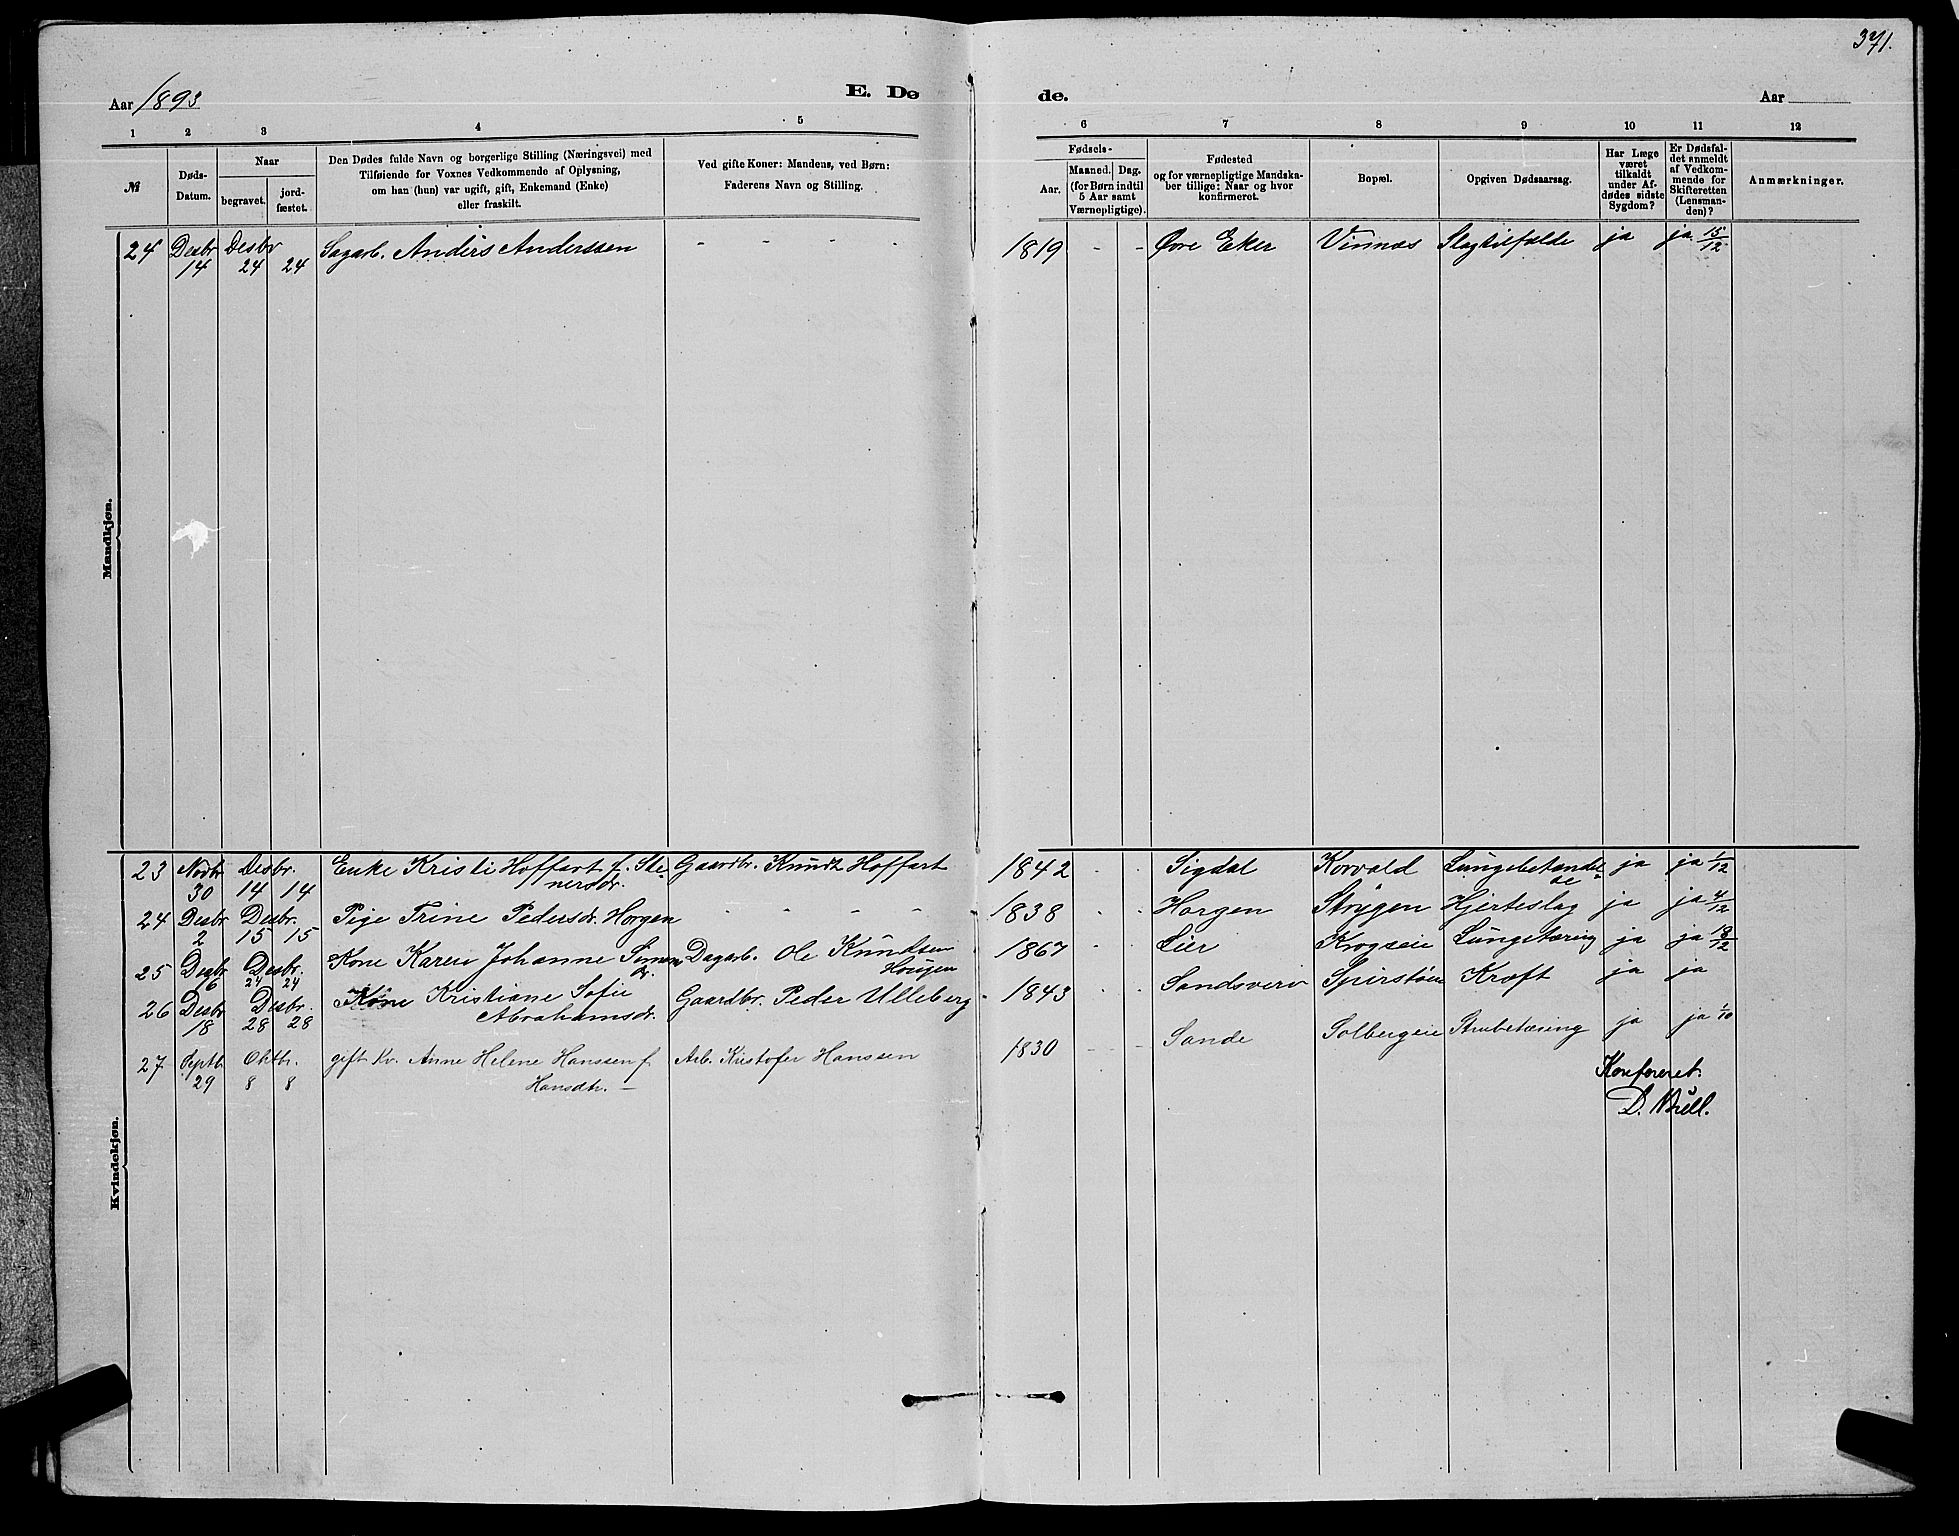 371.
Aar 1893 E. Dø de. Aar
1 2 3 4 5 6 7 8 9 10 11 12
№
Døds-
Datum.
Naar
begravet.
jord-
fæstet.
Den Dødes fulde Navn og borgerlige Stilling (Næringsvei) med
Tilføiende for Voxnes Vedkommende af Oplysning,
om han (hun) var ugift, gift, Enkemand (Enke)
eller fraskilt.
Ved gifte Koner: Mandens, ved Børn:
Faderens Navn og Stilling.
Fødsels-
Aar.
Maaned. Dag.
(for Børn indtil
5 Aar samt
Værnepligtige).
Fødested
og for værnepligtige Mandska-
ber tillige: Naar og hvor
konfirmeret.
Bopæl.
Opgiven Dødsaarsag.
Har Læge
været
tilkaldt
under Af-
dødes sidste
Sygdom?
Er Dødsfal-
det anmeldt
af Vedkom-
mende for
Skifteretten
(Lensman-
den)?
Anmærkninger.
Mandkjøn.
24 Desbr Desbr Sagarb. Anders Anderssen - - - - 1819 - - Øvre Eker Vinnæs Slagtilfælde ja ja 15/12
14 24 24
Kvindekjøn.
23 Novbr Desbr. Enke Kristi Hoffart f. Ste- Gaardbr. Knudt Hoffart 1842 - - Sigdal Korvald Lungebetændel- ja ja 1/12
30 14 14 nersdr. se
24 Desbr Desbr. Pige Trine Pedersdr. Horgen - - - - 1838 - - Horgen Strygen Hjerteslag ja ja 4/12
2 15 15
25 Desbr Desbr. Kone Karen Johanne Simens Dagarb. Ole Knudsen 1867 - - Lier Krogseie Lungetæring ja ja 12
6 24 24 dr. Hougen
26 Desbr Desbr. Kone Kristiane Sofie Gaardbr. Peder Ulleberg - 1843 - - Sandsverv Spirstøen Kræft ja ja
18 28 28 Abrahamsdr.
27 Septb. Oktbr. gift Kv. Anne Helene Hanssen f. Arb. Kristofer Hanssen 1830 - - Sande Solbergeie Strubetæring ja ja 1/10
29 8 8 Hansdtr. -
Konfereret.
D. Bull.